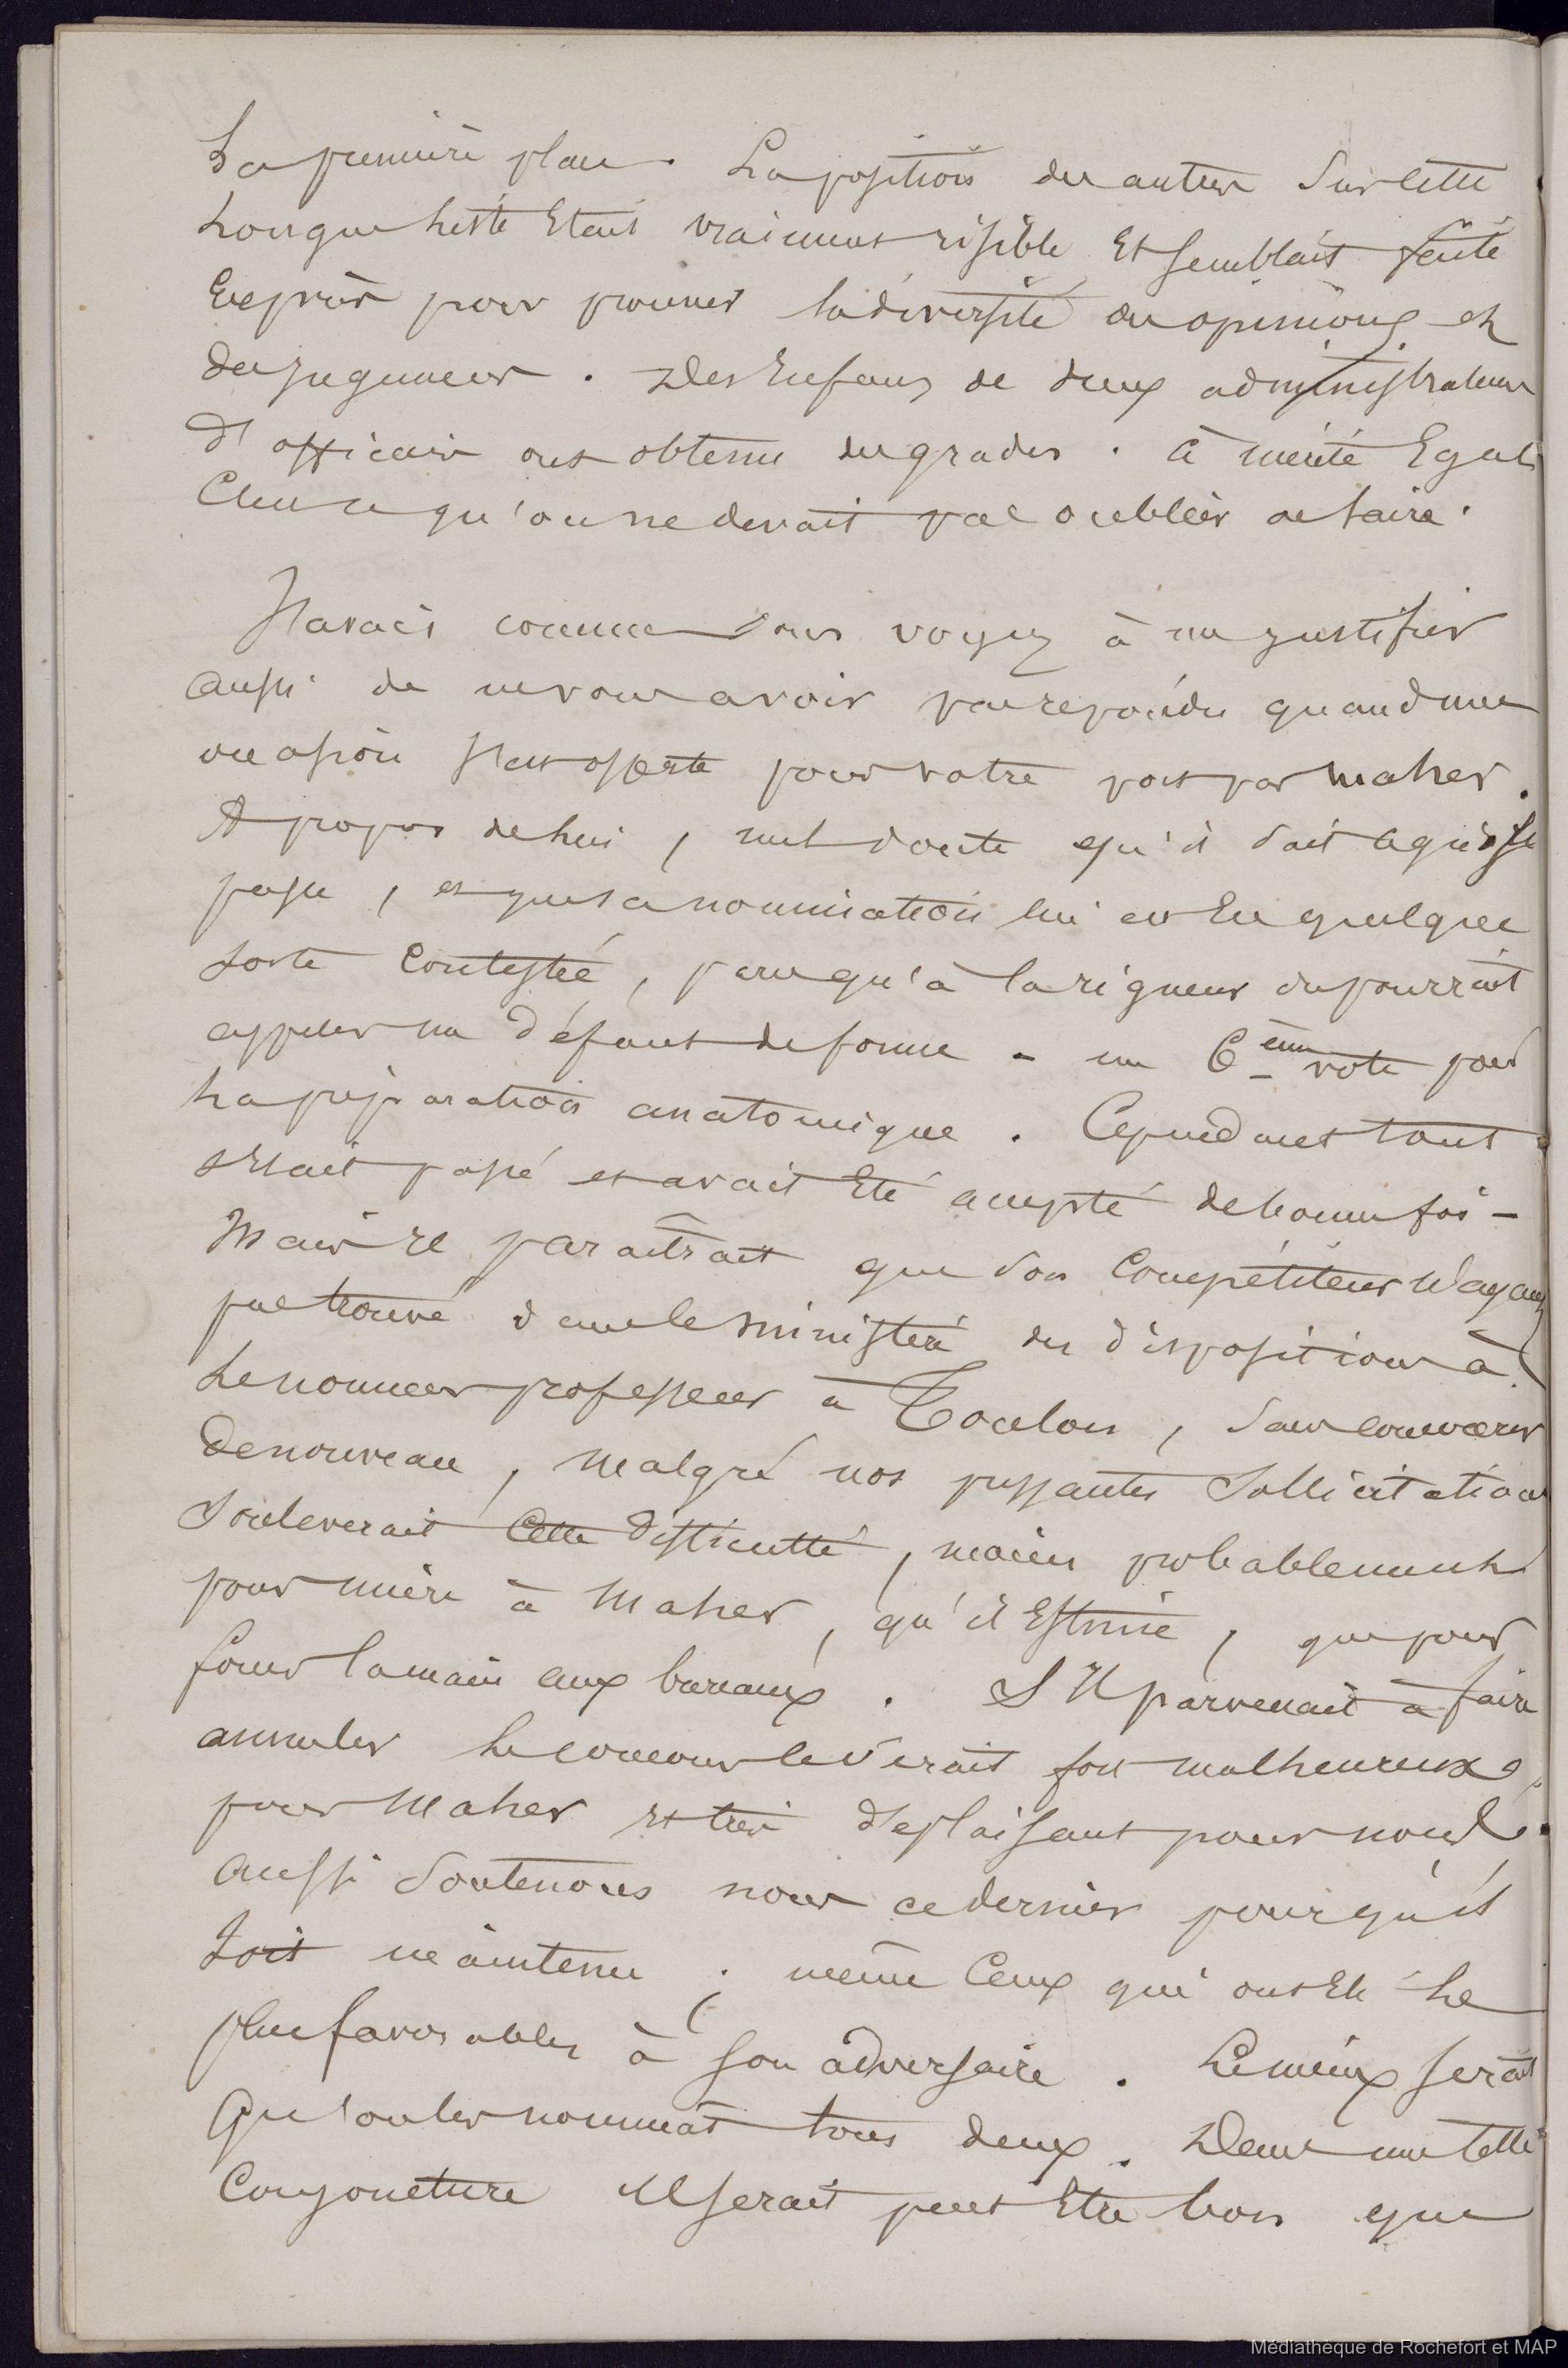 La première place. La position des autres sur cette
longue liste était vraiment risible et semblait faite
Exprès pour prouver la diversité des opinions et
des jugemens. Des Enfans de deux administrateurs
d'officiers ont obtenu des grades. à mérite Egal
C'est ce qu'on ne devait pas oublier de faire.
J'avais comme vous voyez à me justifier
aussi de ne vous avoir pas répondu quand une
occasion s'est offerte pour votre port par Maher.
A propos de lui, nul doute qu'il sait ce qui se
passe, et que sa nomination lui est En quelque
sorte Contestée, parce qu'à la rigueur on pourrait
appeler un défaut de forme - un 6ème vote pour
La préparation anatomique. Cependant tout
s'était passé et avait Eté accepté de bonne foi -
Mais Il paraîtrait que son Compétiteur
pas trouvé dans le ministère des dispositions à
Le nommer professeur à Toulon, sans concourir
De nouveau, malgré nos pressantes Sollicitations
Souleverait Cette difficulté, moins probablement
pour nuire à Maher, qu'il Estime, que pour
forcer la main aux bureaux. S'Il parvenait à faire
annuler Le concours ce serait fort malheureux
pour Maher et très déplaisant pour nous.
Aussi Soutenons nous ce dernier pour qu'il
Soit maintenu, même Ceux qui ont Eté Le
plus favorables à son adversaire. Le mieux serait
Qu'on les nommât tous deux. Dans une telle
Conjoncture Il serait peut Etre bon que
Médiathèque de Rochefort et MAP